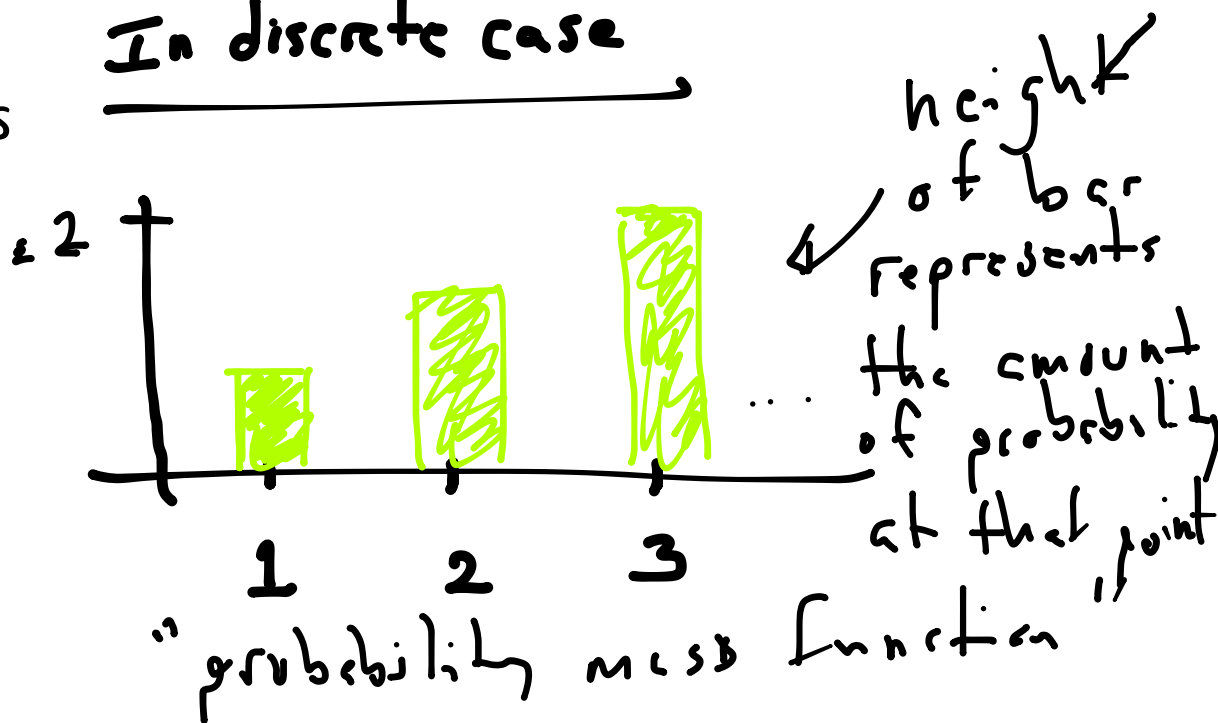 In discrete case
s
.2
height
of bar
represents
the amount
of probability
at that point
...
1 2 3
"probability mass function"